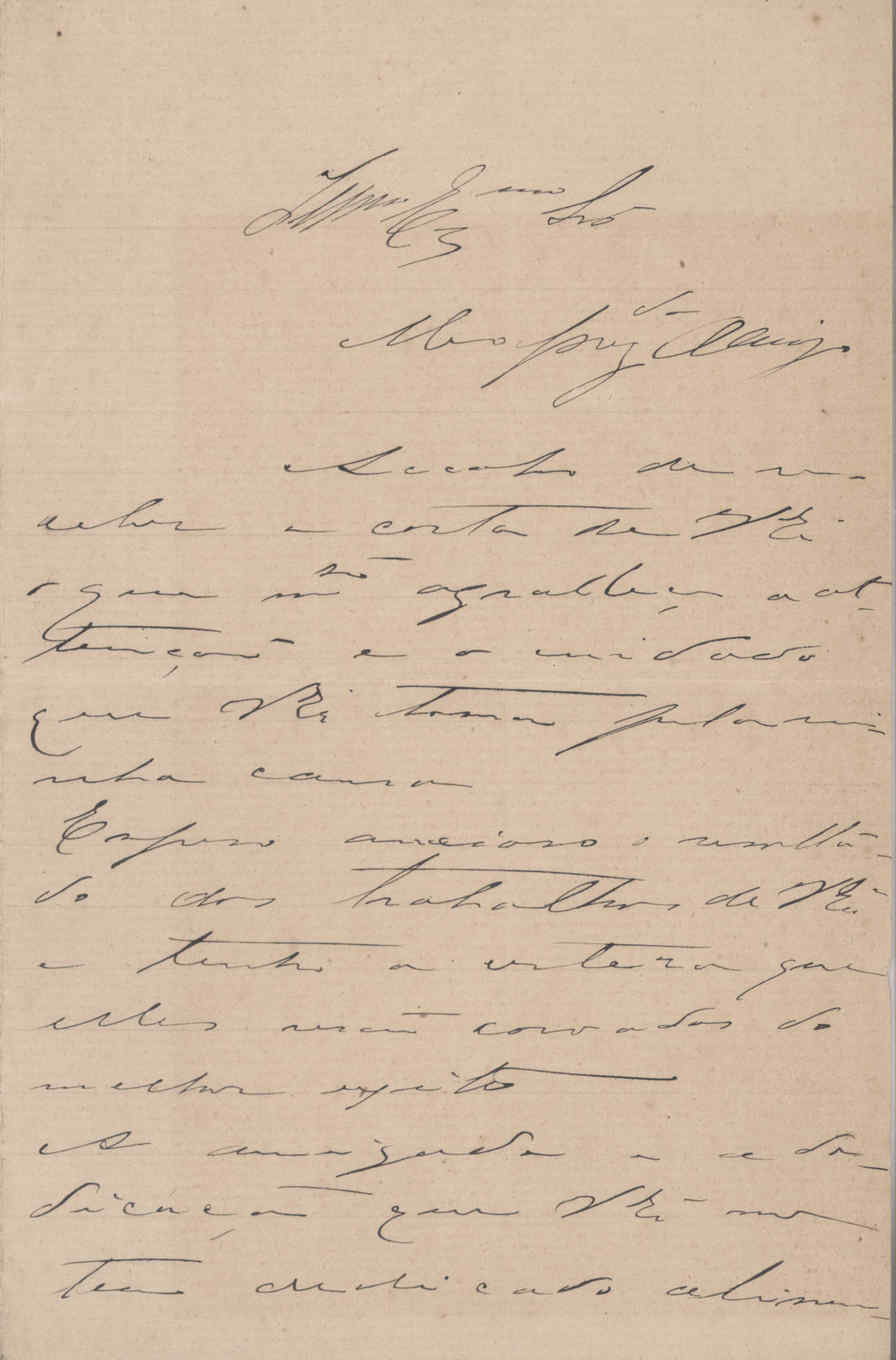 Illmo Exmo Snr
Meu prezdo Amigo
Acabo de re-
ceber a carta de VExa
o que mto agradeço a at-
tenção e o cuidado
que VExa toma pela mi-
nha causa
Espero ancioso o resulta-
do dos trabalhos de VExa
e tenho a certeza que
elles serão coroados do
melhor exito
A amizade e a de-
dicação que VExa me
tem dedicado alimen-